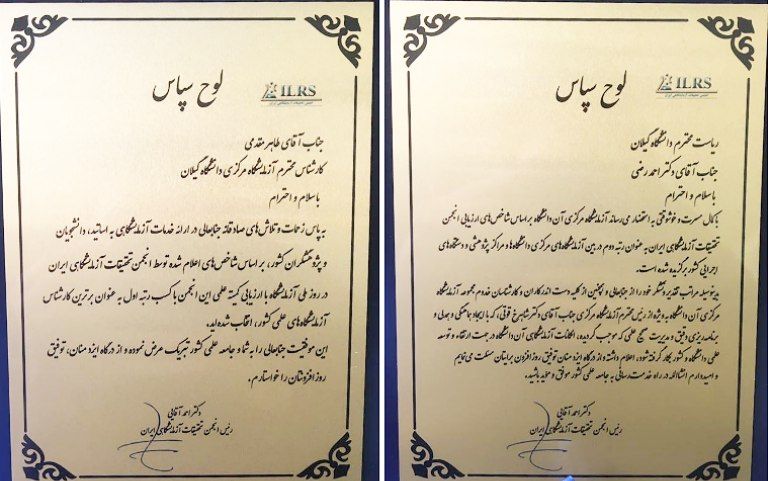 ILRS
انجمن تحقیقات آزمایشگاهی ایران
لوح سپاس
جناب آقای طاهر مقدمی
کارشناس محترم آزمایشگاه مرکزی دانشگاه گیلان
با سلام و احترام
به پاس زحمات و تلاش‌های صادقانه جنابعالی در ارائه خدمات آزمایشگاهی به اساتید، دانشجویان
و پژوهشگران کشور، بر اساس شاخص‌های اعلام شده توسط انجمن تحقیقات آزمایشگاهی ایران
در روز ملی آزمایشگاه با ارزیابی کمیته علمی این انجمن با کسب رتبه اول به عنوان برترین کارشناس
آزمایشگاه‌های علمی کشور، انتخاب شده‌اید.
این موفقیت جنابعالی را به شما و جامعه علمی کشور تبریک عرض نموده و از درگاه ایزد منان، توفیق
روز افزونتان را خواستارم.
دکتر احمد آقایی
رئیس انجمن تحقیقات آزمایشگاهی ایران
ILRS
انجمن تحقیقات آزمایشگاهی ایران
لوح سپاس
ریاست محترم دانشگاه گیلان
جناب آقای دکتر احمد رضی
با سلام و احترام
با کمال مسرت و خوشوقتی به استحضار می‌رساند آزمایشگاه مرکزی آن دانشگاه بر اساس شاخص‌های ارزیابی انجمن
تحقیقات آزمایشگاهی ایران به عنوان رتبه دوم در بین آزمایشگاه‌های مرکزی دانشگاه‌ها و مراکز پژوهشی و دستگاه‌های
اجرایی کشور برگزیده شده است.
بدینوسیله مراتب تقدیر و تشکر خود را از جنابعالی و همچنین از کلیه دست اندرکاران و کارشناسان خدوم مجموعه آزمایشگاه
مرکزی آن دانشگاه به ویژه از رئیس محترم آزمایشگاه مرکزی جناب آقای دکتر شاهرخ قوتی که با ایجاد هماهنگی و همدلی و
برنامه‌ریزی دقیق و مدیریت صحیح علمی که موجب گردیده، امکانات آزمایشگاهی آن دانشگاه در جهت ارتقاء و توسعه
علمی دانشگاه و کشور بکار گرفته شود، اعلام داشته و از درگاه ایزد منان توفیق روز افزون برایتان مسئلت می‌نمایم
و امیدوارم انشاالله در راه خدمت رسانی به جامعه علمی کشور موفق و موید باشید.
دکتر احمد آقایی
رئیس انجمن تحقیقات آزمایشگاهی ایران